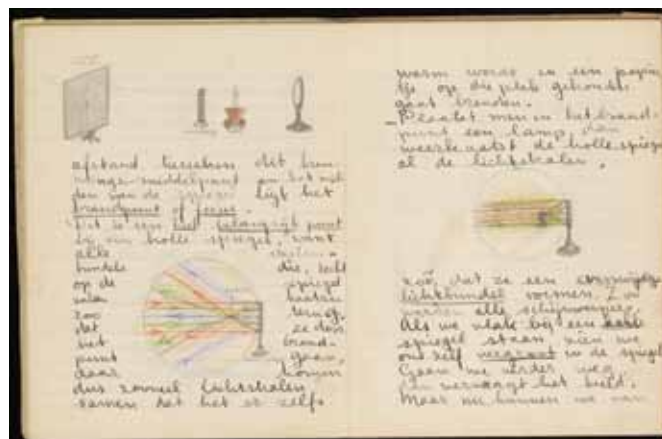 afstand tusschen dit krom-
mings-middelpunt en het mid-
den van de spiegel ligt het
brandpunt of focus.
Dit is een heel belangrijk punt
bij een holle spiegel, want
alle
bundels die, echt
op de spiegel
vallen kaatsen
zoo terug,
dat ze door
het brand-
punt gaan,
daar komen
dus zooveel lichtstralen
samen dat het er zelfs
warm wordt en een papier-
tje op die plek gehouden
gaat branden.
- Plaatst men in het brand-
punt een lamp, dan
weerkaatst de holle spiegel
al de lichtstralen,
zoo, dat ze een evenwijdige
lichtbundel vormen. Zoo
werken alle schijnwerpers.
Als we vlak bij een
spiegel staan, zien we
ons zelf vergroot in de spiegel
Gaan we verder weg
dan vervaagt het beeld.
Maar nu kunnen we van